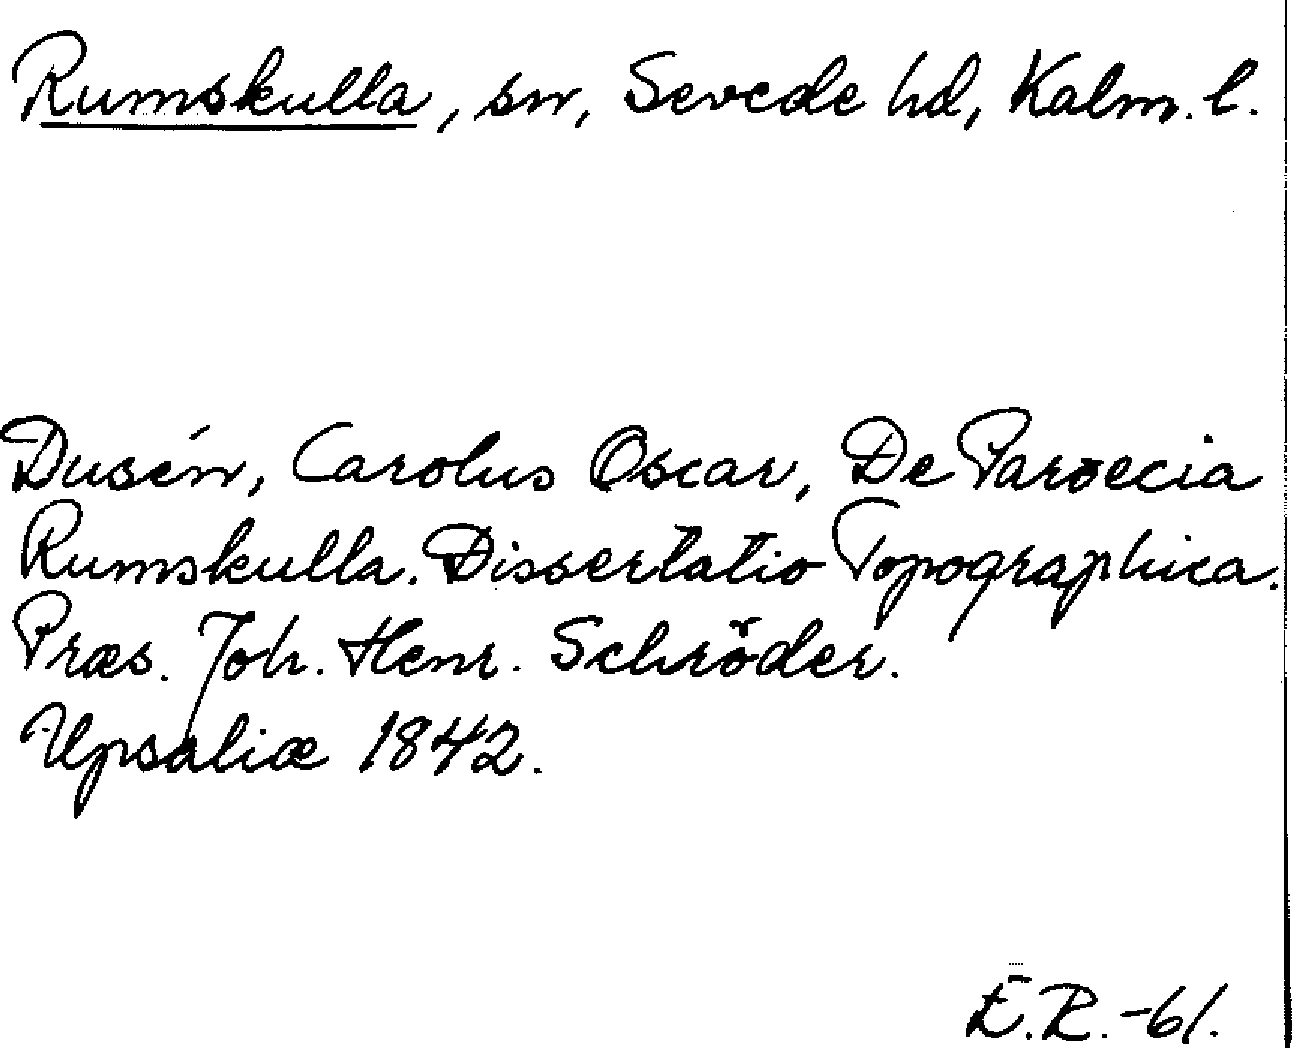 Rumskulla, sn, Sevede hd, Kalm. l.
Dusén, Carolus Oscar, De Paroecia
Rumskulla. Dissertatio Topographica.
Præs. Joh. Henr. Schröder.
Upsaliæ 1842.
E.R.-61.